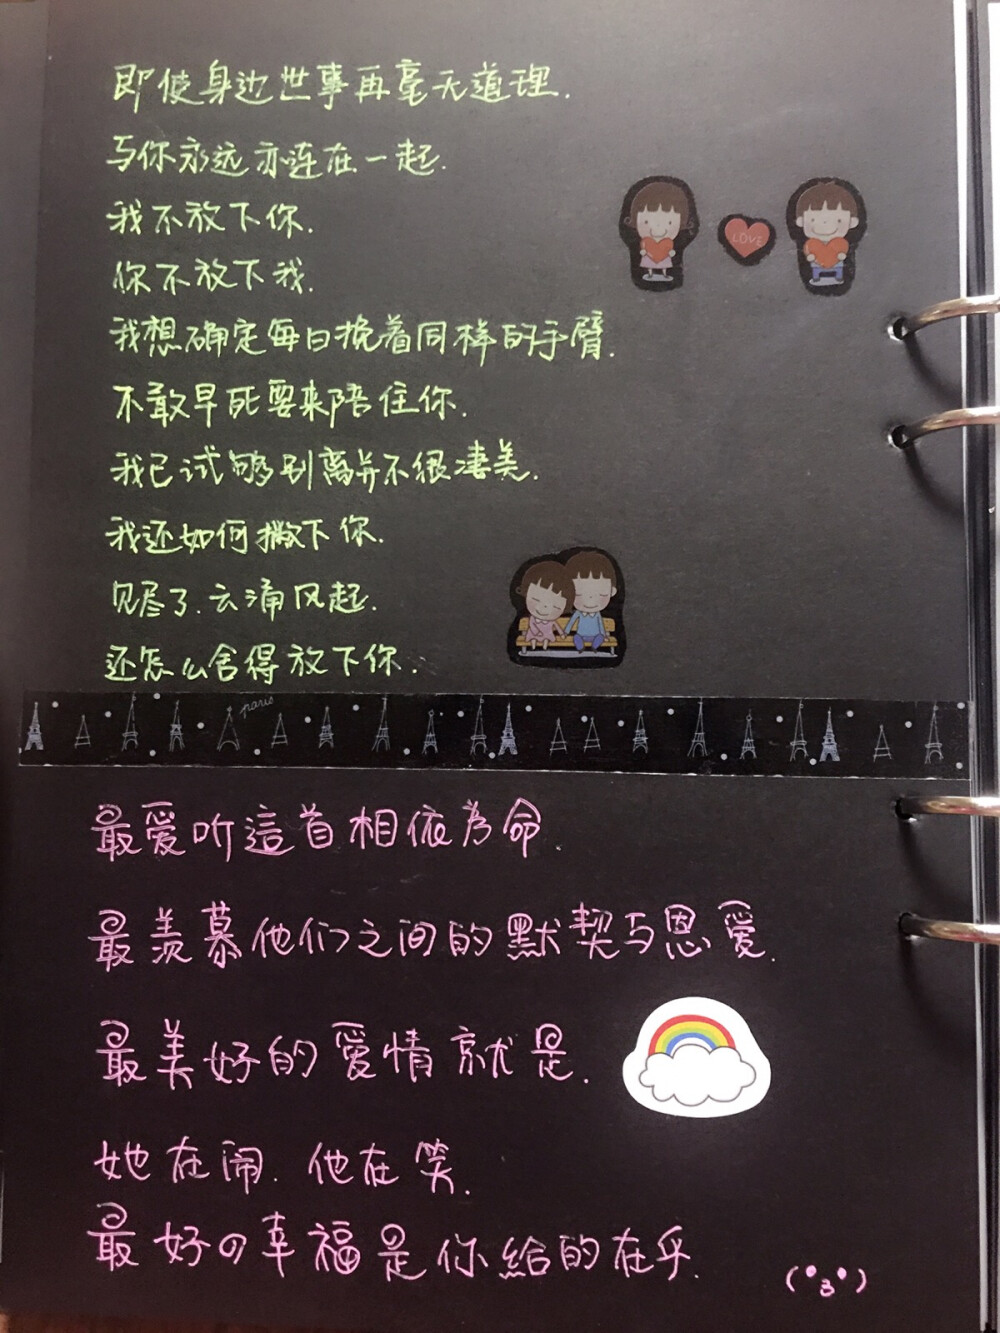 即使身边世事再毫无道理.
与你永远亦连在一起.
LOVE
我不放下你.
你不放下我.
我想确定每日挽着同样的手臂.
不敢早死要来陪住你.
我已试够别离并不很凄美.
我还如何撇下你.
见尽了.云涌风起.
还怎么舍得放下你.
paris
最爱听這首相依为命.
最羡慕他们之间的默契与恩爱.
最美好的爱情就是.
她在闹.他在笑.
最好の幸福是你給的在乎.
(•3•)